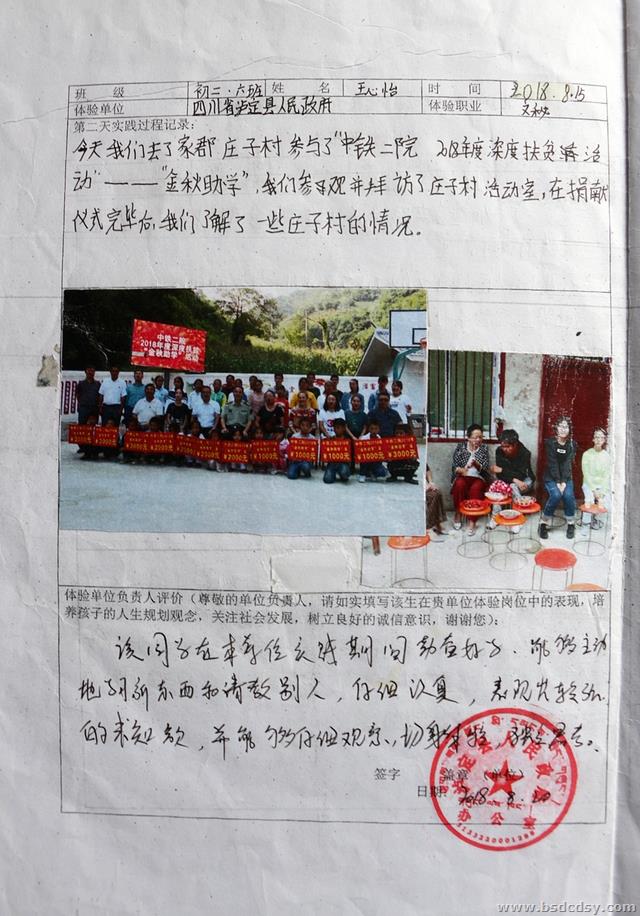 班 级 初二·六班 姓 名 王心怡 时 间 2018.8.15
体验单位 四川省泸定县人民政府 体验职业 文秘
第二天实践过程记录:
今天我们去了家郡庄子村参与了“中铁二院 2018年度深度扶贫 活
动”——“金秋助学”,我们参观并拜访了庄子村活动室,在捐献
仪式完毕后,我们了解了一些庄子村的情况。
中铁二院
2018年度深度扶贫
“金秋助学”活动
¥1000元
¥1000元
¥1000元
¥3000元
体验单位负责人评价(尊敬的单位负责人,请如实填写该生在贵单位体验岗位中的表现,培
养孩子的人生规划观念,关注社会发展,树立良好的诚信意识,谢谢您):
该同学在本单位实践期间勤奋好学,能够主动
地学习新东西和请教别人,仔细认真,表现出较强
的求知欲,并能够仔细观察、切身体验、独立思考。
签字 盖章 (单位)
日期: 2018.8.20
泸定县人民政府
办公室
www.bsdcdsy.com